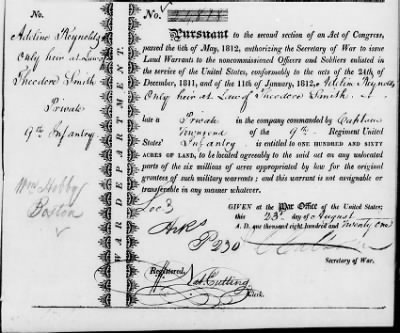 No.
No. 24,888
Adeline Reynolds
Only heir at Law of
Theodore Smith
Private
9th Infantry
Wm Hobby
Boston
WAR DEPARTMENT.
Pursuant to the second section of an Act of Congress,
passed the 6th of May, 1812, authorizing the Secretary of War to issue
Land Warrants to the noncommissioned Officers and Soldiers enlisted
in the service of the United States, conformably to the acts of the 24th of
December, 1811, and of the 11th of January, 1812, Adeline Reynolds
Only heir at Law of Theodore Smith
late a Private in the company commanded by Captain
Townsend of the 9th Regiment United
States' Infantry is entitled to ONE HUNDRED AND SIXTY
ACRES OF LAND, to be located agreeably to the said act on any unlocated
parts of the six millions of acres appropriated by law for the original
grantees of such military warrants; and this warrant is not assignable or
transferable in any manner whatever.
GIVEN at the War Office of the United States;
this 23d day of August
A. D. one thousand eight hundred and Twenty one
Loc 3
Arks
P 230
Secretary of War.
Registered, Nat Cutting
Clerk.